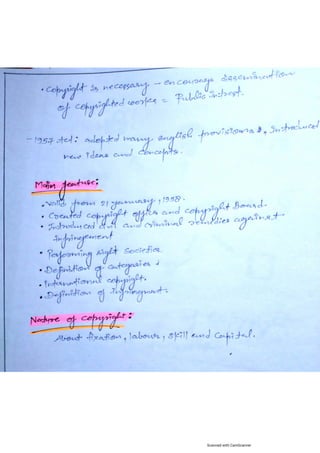 • Copyright is necessary - encourage dissemination
of copyrighted works = Public intrest.
- 1957 Act: adopted many english provisions &, Introduced
new ideas and concepts.
Main feature:
• Valid from 21 january, 1958.
• Created copyright office and copyright Board.
• Introduced civil and criminal remedies against
infringement
• Performing right societies
• Definition of categories
• International copyright.
• Definition of infringment.
Nature of copyright:
About fixation, labour, skill and Capital.
Scanned with CamScanner